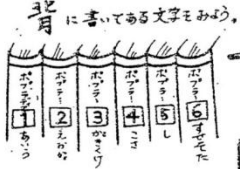 背に書いてある文字をみよう。
ポプラディア 1 あいう
ポプラディア 2 えおか
ポプラディア 3 かきくけ
ポプラディア 4 こさ
ポプラディア 5 し
ポプラディア 6 すせそた